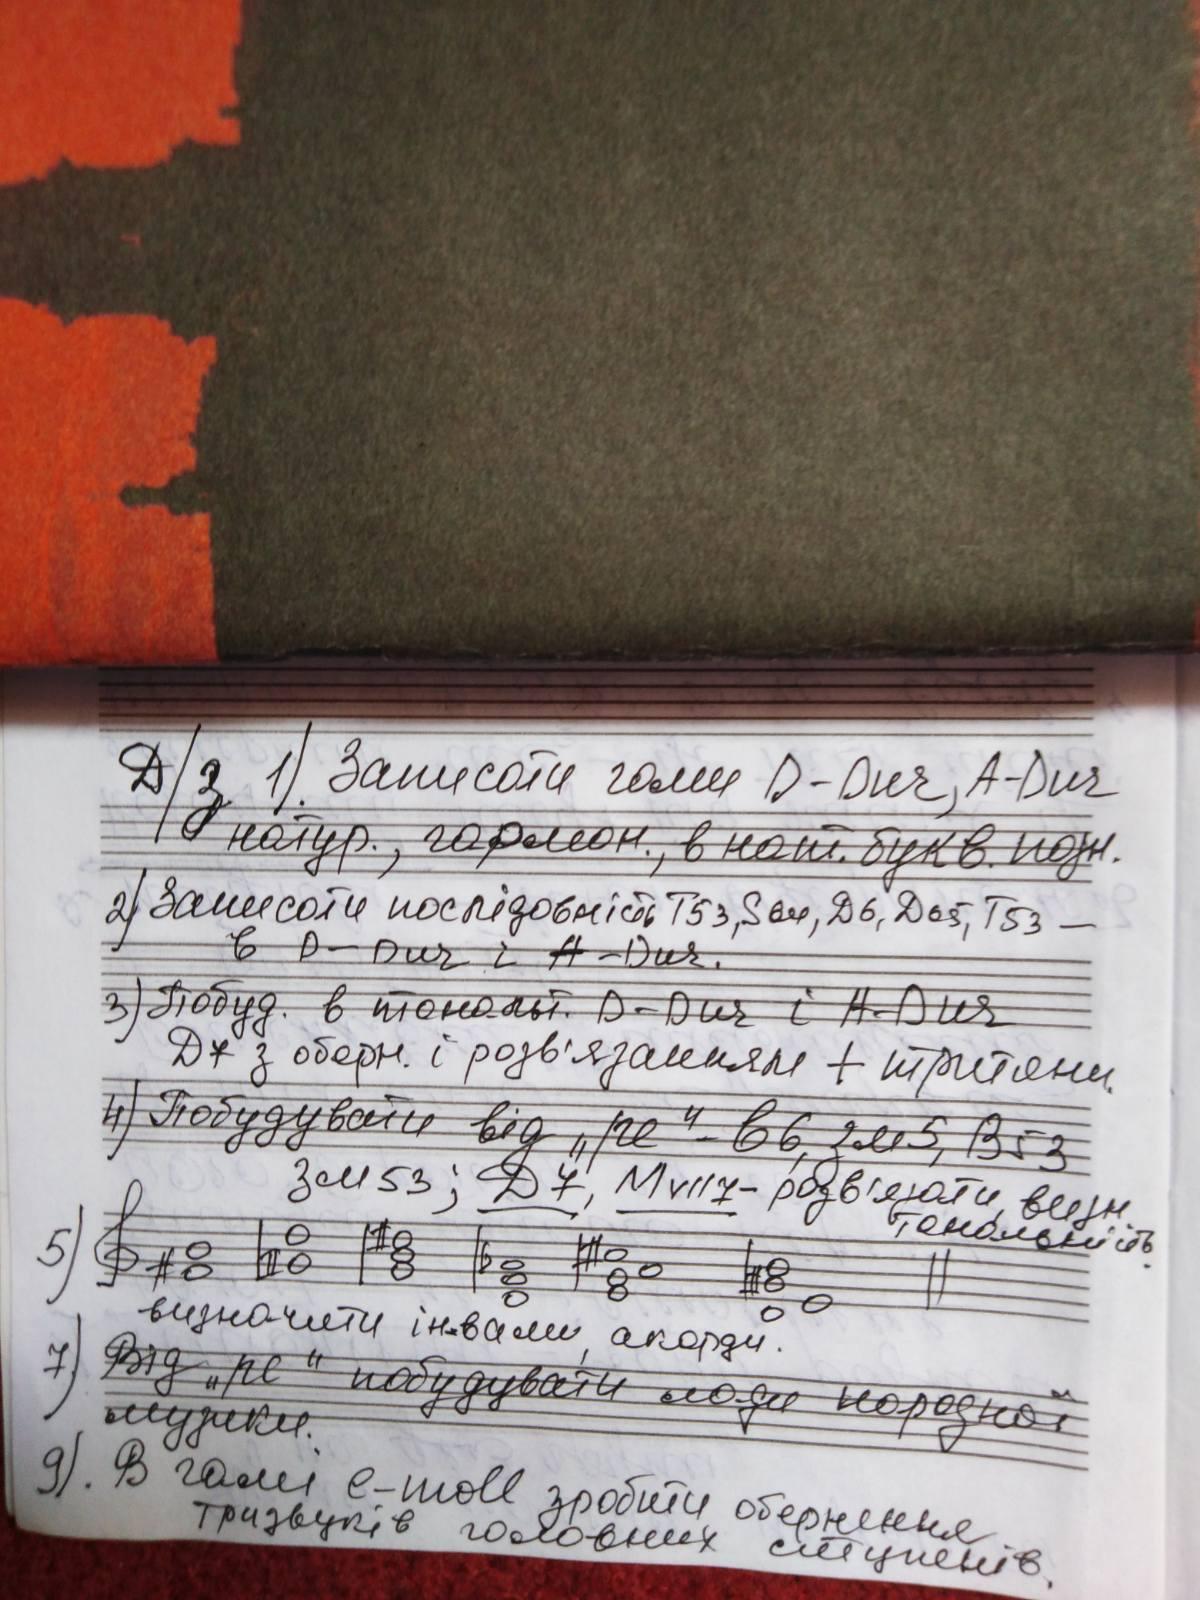 Д/з 1). Записати гами D-Dur, A-Dur
натур., гармон., в нот. букв. позн.
2) Записати послідовність Т53, S64, Д6, Д65, Т53 —
в D-Dur і A-Dur.
3) Побуд. в тональн. D-Dur і A-Dur
Д7 з оберн. і розв'язанням + тритони.
4) Побудувати від „ре" - в6, зм5, Б53
Зм53; Д7, МVII7 - розв'язати, визн.
тональність.
5)
визначити інтвали, акорди.
7) Від „ре" побудувати лади народної
музики.
9). В гамі e-moll зробити обернення
тризвуків головних ступенів.